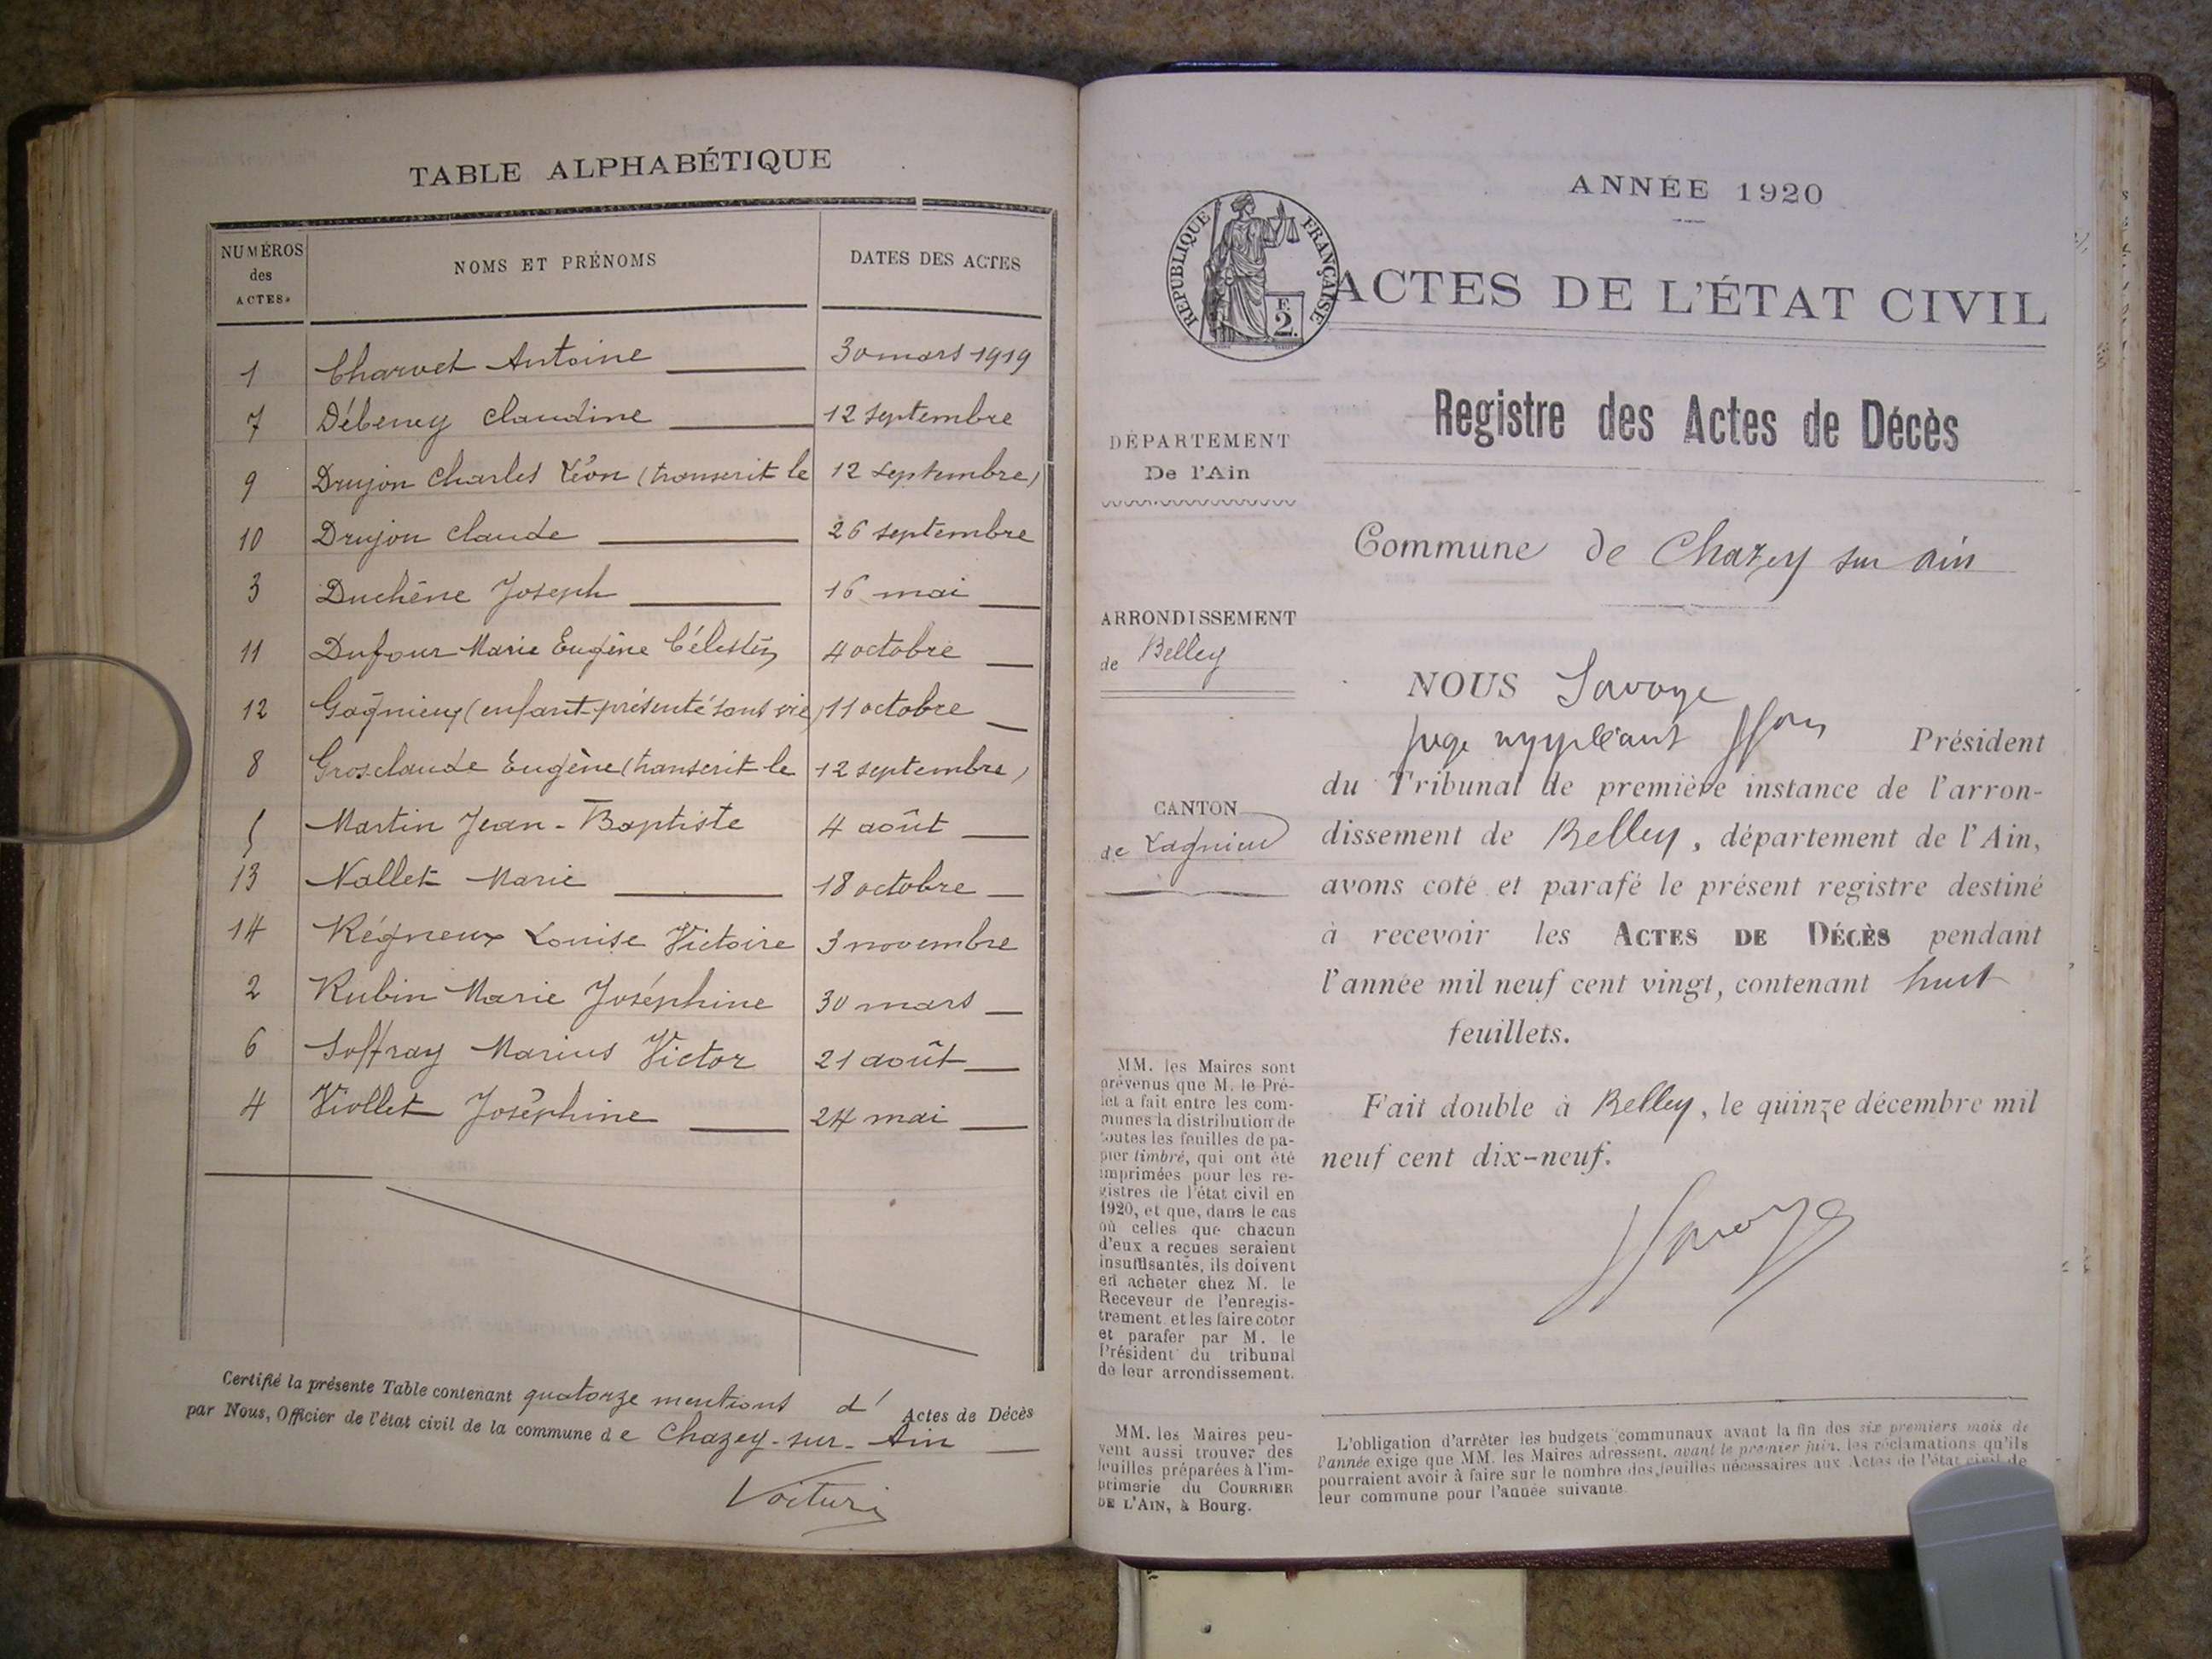 TABLE ALPHABÉTIQUE
NUMÉROS des ACTES. NOMS ET PRÉNOMS DATES DES ACTES
1 Charvet Antoine 30 mars 1919
7 Débeney Claudine 12 septembre
9 Drujon Charles Léon (transcrit le 12 septembre)
10 Drujon Claude 26 septembre
3 Duchêne Joseph 16 mai
11 Dufour Marie Eugène Célestin 4 octobre
12 Gagnieux (enfant présenté sans vie) 11 octobre
8 Grosclaude Eugène (transcrit le 12 septembre)
5 Martin Jean-Baptiste 4 août
13 Nallet Marie 18 octobre
14 Régneux Louise Victoire 3 novembre
2 Rubin Marie Joséphine 30 mars
6 Soffray Marius Victor 21 août
4 Viollet Joséphine 24 mai
Certifié la présente Table contenant quatorze mentions d' Actes de Décès
par Nous, Officier de l'état civil de la commune de Chazey-sur-Ain
ANNÉE 1920
RÉPUBLIQUE FRANÇAISE
F. 2.
ACTES DE L'ÉTAT CIVIL
Registre des Actes de Décès
DÉPARTEMENT
De l'Ain
Commune de Chazey sur Ain
ARRONDISSEMENT
de Belley
CANTON
de Lagnieu
NOUS Savoye
juge suppléant Président
du Tribunal de première instance de l'arron-
dissement de Belley, département de l'Ain,
avons coté et parafé le présent registre destiné
à recevoir les ACTES DE DÉCÈS pendant
l'année mil neuf cent vingt, contenant huit
feuillets.
Fait double à Belley, le quinze décembre mil
neuf cent dix-neuf.
Savoye
MM. les Maires sont
prévenus que M. le Pré-
fet a fait entre les com-
munes la distribution de
toutes les feuilles de pa-
pier timbré, qui ont été
imprimées pour les re-
gistres de l'état civil en
1920, et que, dans le cas
où celles que chacun
d'eux a reçues seraient
insuffisantes, ils doivent
en acheter chez M. le
Receveur de l'enregis-
trement et les faire coter
et parafer par M. le
Président du tribunal
de leur arrondissement.
MM. les Maires peu-
vent aussi trouver des
feuilles préparées à l'im-
primerie du COURRIER
DE L'AIN, à Bourg.
L'obligation d'arrêter les budgets communaux avant la fin des six premiers mois de
l'année exige que MM. les Maires adressent, avant le premier juin, les réclamations qu'ils
pourraient avoir à faire sur le nombre des feuilles nécessaires aux Actes de l'état civil de
leur commune pour l'année suivante.